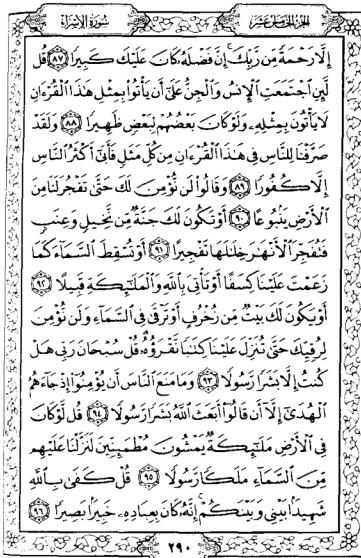 سُورَةُ الإِسْرَاءِ
الجزء الخامس عشر
إِلَّا رَحْمَةً مِّن رَّبِّكَ ۚ إِنَّ فَضْلَهُۥ كَانَ عَلَيْكَ كَبِيرًا ﴿٨٧﴾ قُل
لَّئِنِ ٱجْتَمَعَتِ ٱلْإِنسُ وَٱلْجِنُّ عَلَىٰٓ أَن يَأْتُوا۟ بِمِثْلِ هَٰذَا ٱلْقُرْءَانِ
لَا يَأْتُونَ بِمِثْلِهِۦ وَلَوْ كَانَ بَعْضُهُمْ لِبَعْضٍ ظَهِيرًا ﴿٨٨﴾ وَلَقَدْ
صَرَّفْنَا لِلنَّاسِ فِى هَٰذَا ٱلْقُرْءَانِ مِن كُلِّ مَثَلٍ فَأَبَىٰٓ أَكْثَرُ ٱلنَّاسِ
إِلَّا كُفُورًا ﴿٨٩﴾ وَقَالُوا۟ لَن نُّؤْمِنَ لَكَ حَتَّىٰ تَفْجُرَ لَنَا مِنَ
ٱلْأَرْضِ يَنۢبُوعًا ﴿٩٠﴾ أَوْ تَكُونَ لَكَ جَنَّةٌ مِّن نَّخِيلٍ وَعِنَبٍ
فَتُفَجِّرَ ٱلْأَنْهَٰرَ خِلَٰلَهَا تَفْجِيرًا ﴿٩١﴾ أَوْ تُسْقِطَ ٱلسَّمَآءَ كَمَا
زَعَمْتَ عَلَيْنَا كِسَفًا أَوْ تَأْتِىَ بِٱللَّهِ وَٱلْمَلَٰٓئِكَةِ قَبِيلًا ﴿٩٢﴾
أَوْ يَكُونَ لَكَ بَيْتٌ مِّن زُخْرُفٍ أَوْ تَرْقَىٰ فِى ٱلسَّمَآءِ وَلَن نُّؤْمِنَ
لِرُقِيِّكَ حَتَّىٰ تُنَزِّلَ عَلَيْنَا كِتَٰبًا نَّقْرَؤُهُۥ ۗ قُلْ سُبْحَانَ رَبِّى هَلْ
كُنتُ إِلَّا بَشَرًا رَّسُولًا ﴿٩٣﴾ وَمَا مَنَعَ ٱلنَّاسَ أَن يُؤْمِنُوٓا۟ إِذْ جَآءَهُمُ
ٱلْهُدَىٰٓ إِلَّآ أَن قَالُوٓا۟ أَبَعَثَ ٱللَّهُ بَشَرًا رَّسُولًا ﴿٩٤﴾ قُل لَّوْ كَانَ
فِى ٱلْأَرْضِ مَلَٰٓئِكَةٌ يَمْشُونَ مُطْمَئِنِّينَ لَنَزَّلْنَا عَلَيْهِم
مِّنَ ٱلسَّمَآءِ مَلَكًا رَّسُولًا ﴿٩٥﴾ قُلْ كَفَىٰ بِٱللَّهِ
شَهِيدًۢا بَيْنِى وَبَيْنَكُمْ ۚ إِنَّهُۥ كَانَ بِعِبَادِهِۦ خَبِيرًۢا بَصِيرًا ﴿٩٦﴾
٢٩٠